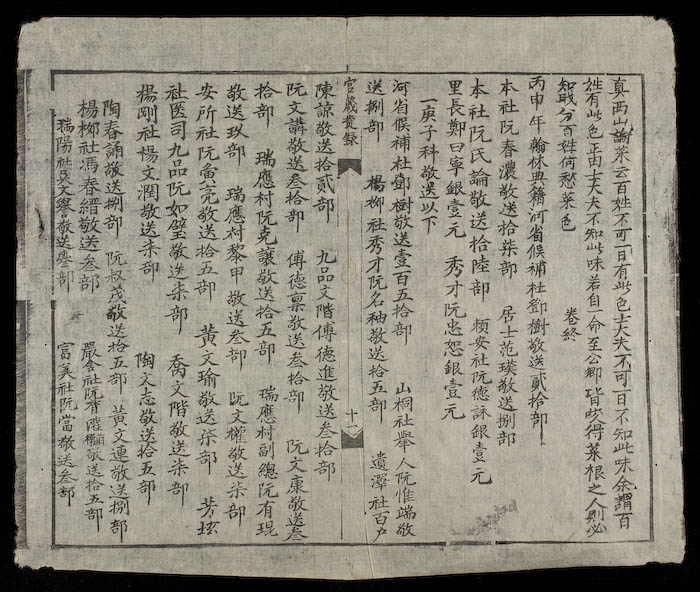 真西山論菜云百姓不可一日有此色士大夫不可一日不知此味余謂百
姓有此色正由士大夫不知此味若自一命至公卿皆咬得菜根之人則必
知職分百姓何愁菜色　卷終
丙申年翰林典籍河省候補杜鄧樹敬送貳拾部
本社阮春濃敬送拾柒部　居士范瑛敬送捌部
本社阮氏論敬送拾陸部　頻安社阮德詠銀壹元
里長鄭曰寧銀壹元　秀才阮忠恕銀壹元
一庚子科敬送以下
河省候補杜鄧樹敬送壹百五拾部　山桐社舉人阮惟端敬
送捌部　楊柳社秀才阮名秞敬送拾五部　遺澤社百戶
官箴彙錄　十一
陳諒敬送拾貳部　九品文階傅德進敬送叁拾部
阮文講敬送叁拾部　傅德稟敬送叁拾部　阮文康敬送叁
拾部　瑞應村阮克讓敬送拾五部　瑞應村副總阮有琨
敬送玖部　瑞應村黎甲敬送叁部　阮文權敬送柒部
安所社阮畣亮敬送拾五部　黃文瑜敬送柒部　芳垓
社医司九品阮如璧敬送柒部　喬文階敬送柒部
楊剛社楊文潤敬送柒部　陶文志敬送拾五部
陶春誦敬送捌部　阮叔茂敬送拾五部　黃文連敬送捌部
楊柳社馮春縉敬送叁部　嚴舍社阮有敬送拾五部
瑞陽社吳文譽敬送叁部　富美社阮當敬送叁部